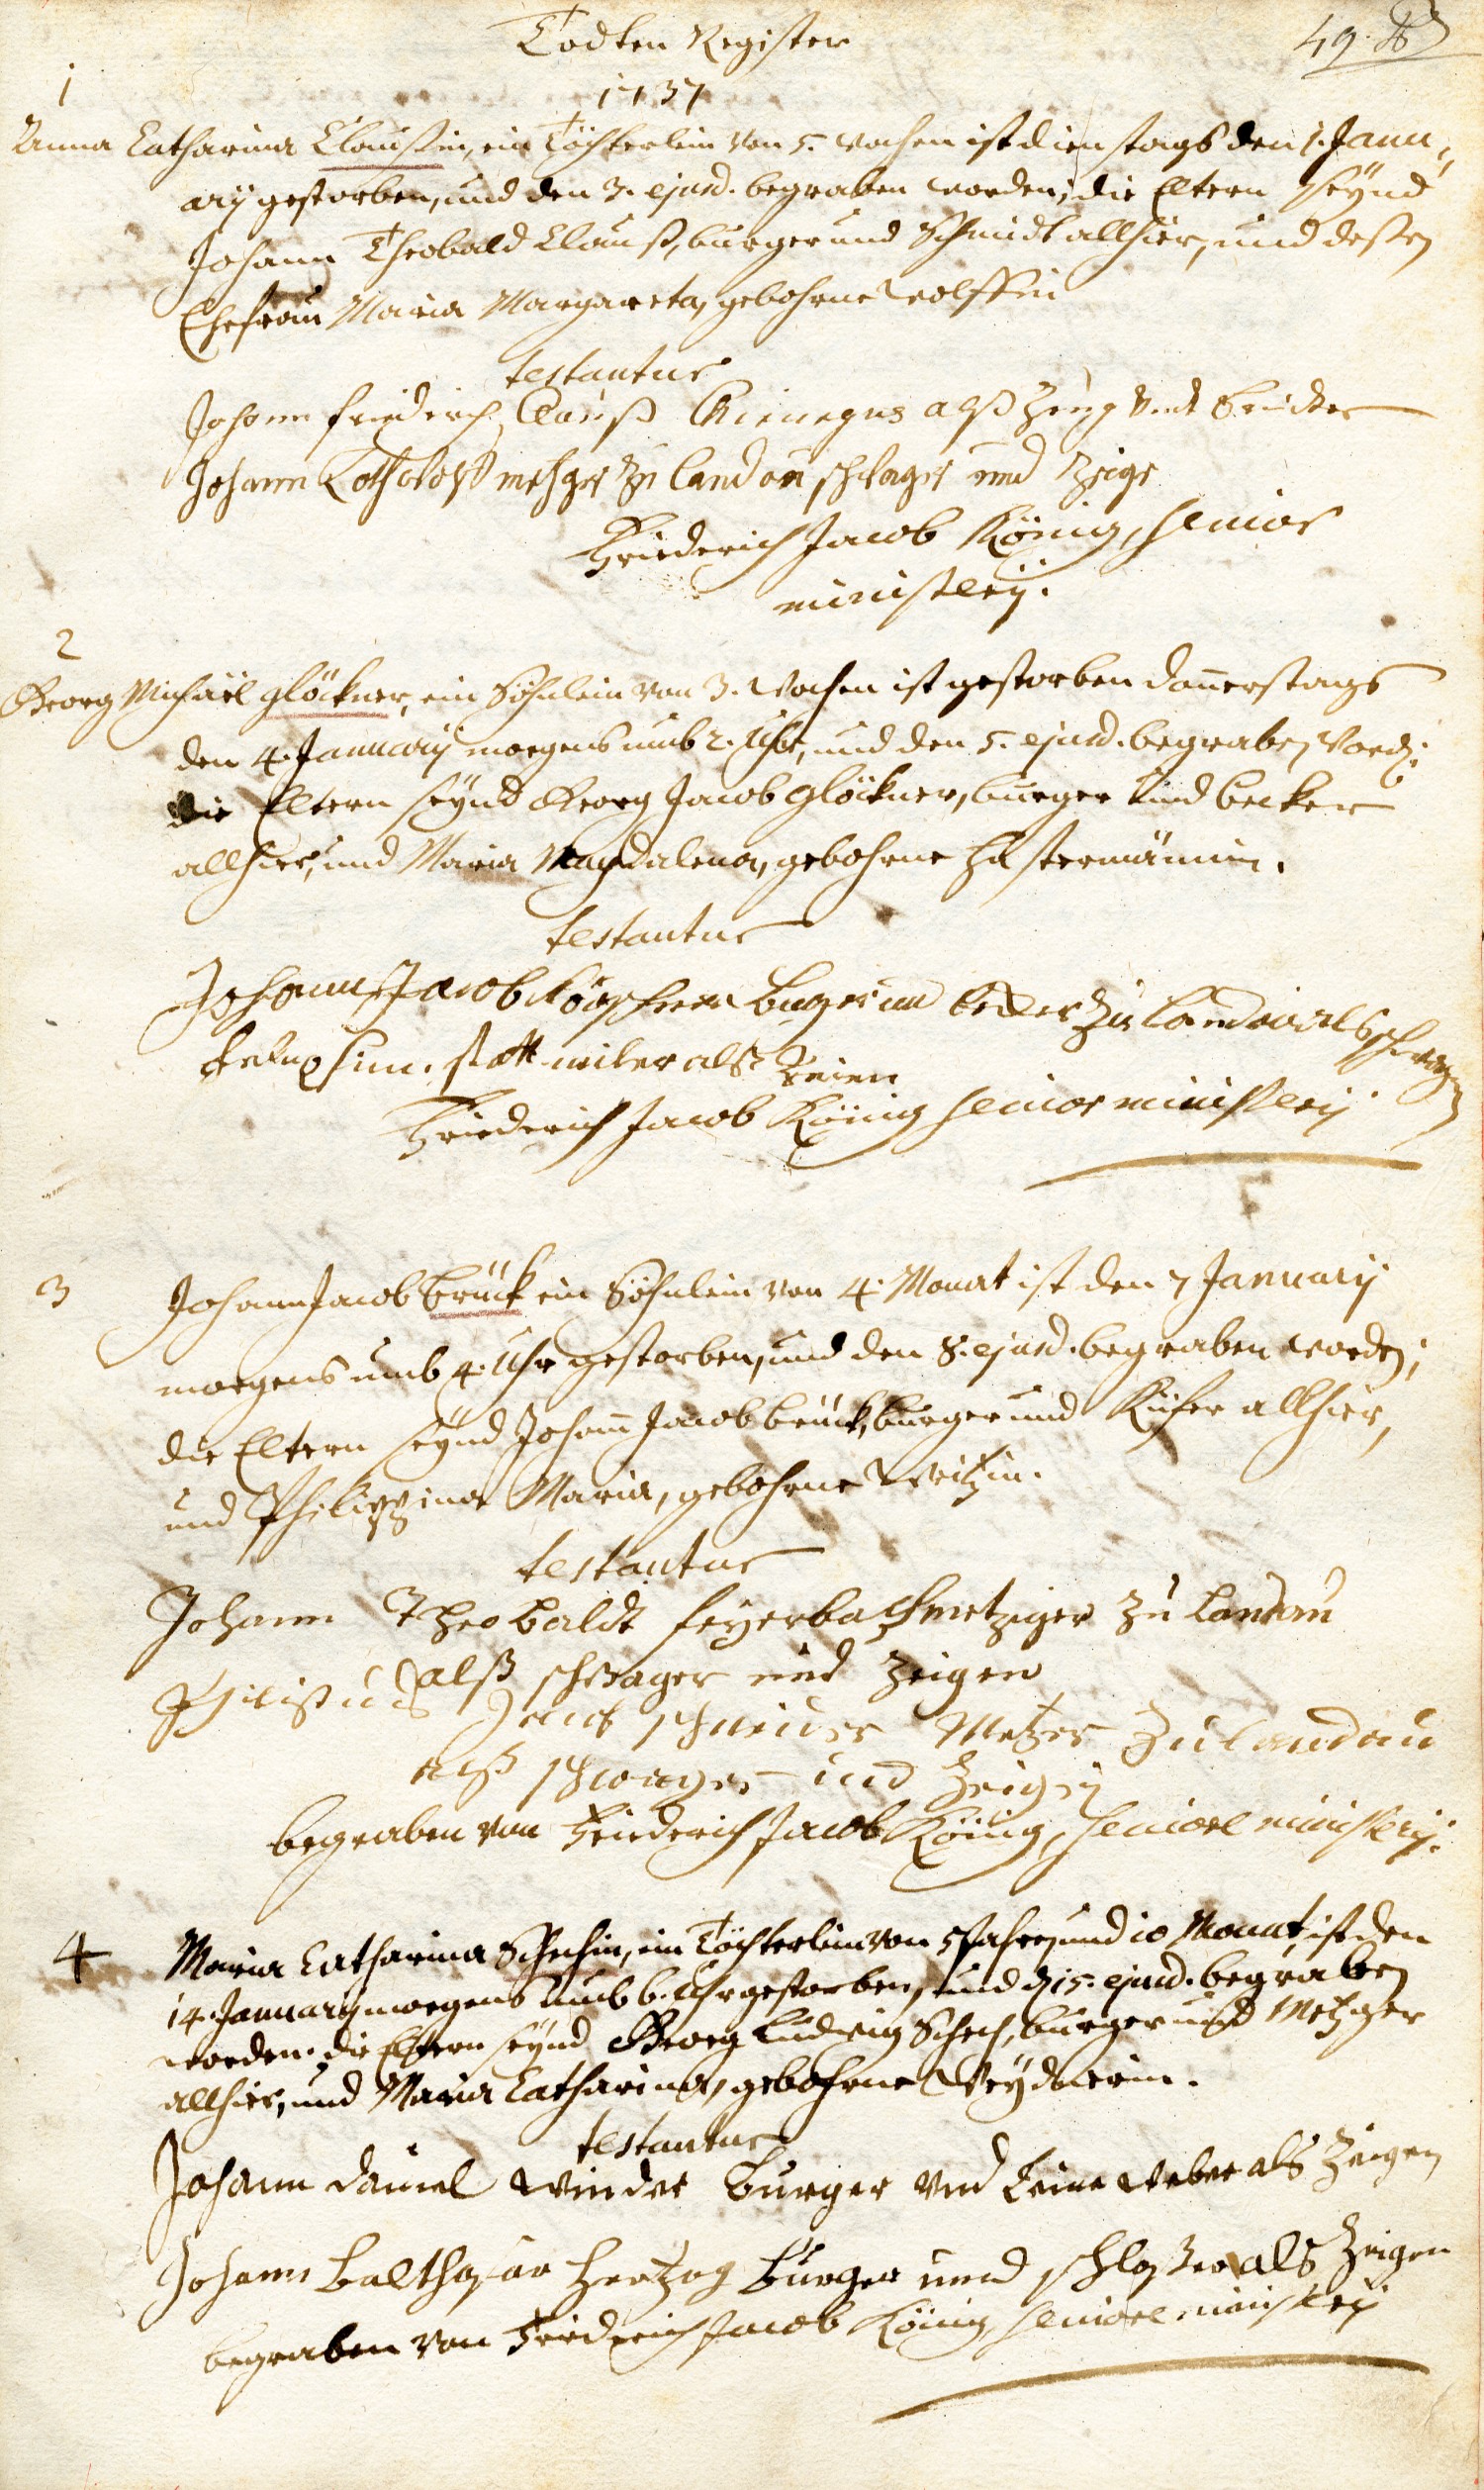 Todten Register
49.
1737
1
Anna Catharina Claussin, ein Töchterlein von 5. wochen ist dienstags den 1. Janu-
arij gestorben, und den 3. ejusd. begraben worden, die Eltern seynd
Johann Theobald Clauß, burger und Schmidt allhier, und dessen
Ehefrau Maria Margareta, gebohrne Wolffin
testantur
Johann friederich Clauß alß Zeug
Johann metzger zu landau schwager und Zeige
Friederich Jacob König, senior
ministerij.
2
Georg Michaël Glöckner, ein Söhnlein von 3. wochen ist gestorben donnerstags
den 4. Januarij morgens umb 2. Uhr, und den 5. ejusd. begraben word:
die Eltern seynd Georg Jacob Glöckner, burger und becker
allhier, und Maria Magdalena, gebohrne
testantur
Johann Jacob burger und becker zu landau als schwager
alß Zeigen
Friederich Jacob König senior ministerij
3
Johann Jacob Brück ein Söhnlein von 4. Monat ist den 7 Januarij
morgens umb 4. Uhr gestorben, und den 8. ejusd. begraben worden;
die Eltern seynd Johann Jacob brück, burger und Küfer allhier,
und Philippina Maria, gebohrne Weitzin.
testantur
Johann Theobaldt feyerbach metziger zu landau
alß schwager und zeigen
schneider Metzer zu landau
alß schwager und Zeigen
begraben von Friederich Jacob König, seniore ministerij.
4
Maria Catharina Schechin, ein Töchterlein von 5 Jahren und 10 Monat, ist den
14. Januarij morgens umb 6. Uhr gestorben, und d 15. ejusd. begraben
worden. die Eltern seynd Georg Ludwig Schech, burger und Metzger
allhier, und Maria Catharina, gebohrne Weydnerin.
testantur
Johann daniel Winder burger und Leineweber als Zeigen
Johann Balthasar Hertzog burger und schlosser als Zeigen
begraben von Friederich Jacob König seniore ministerij